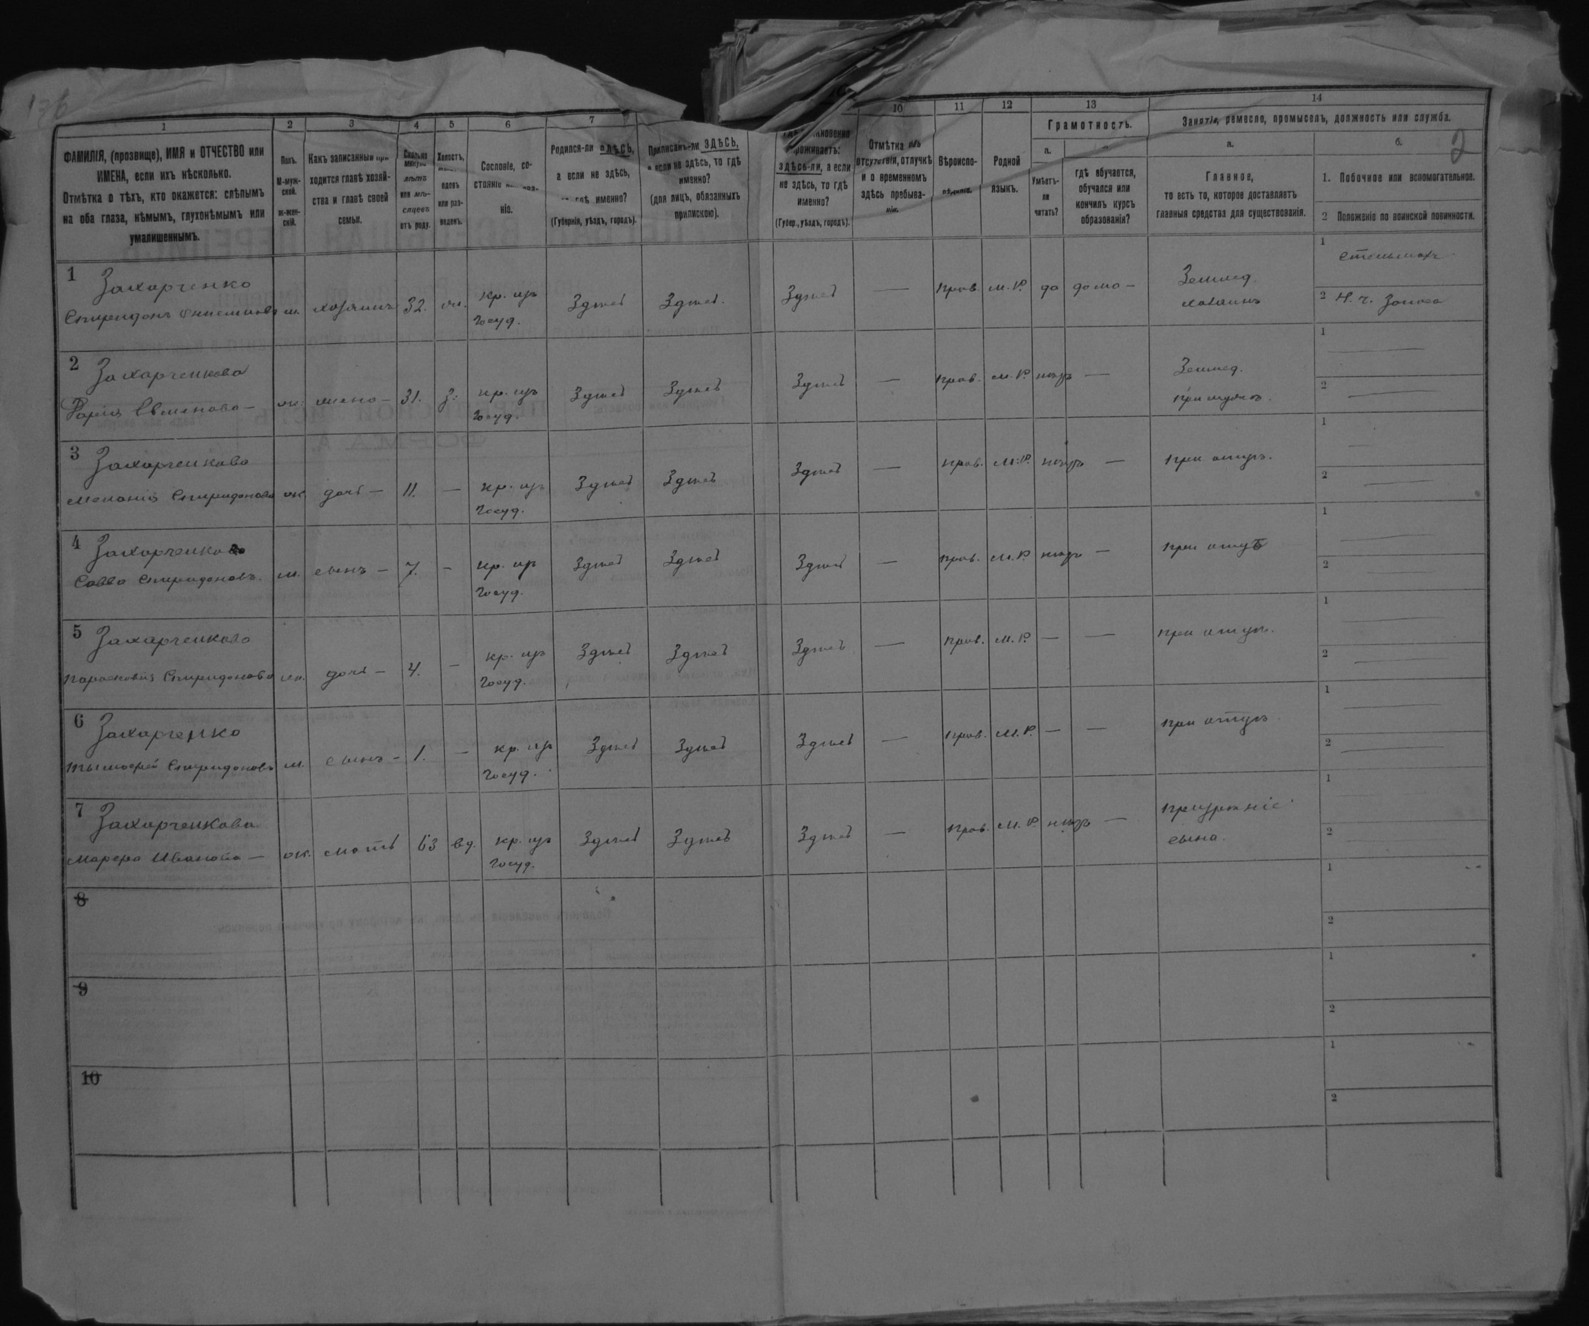 1
2
3
4
5
6
7
10
11
12
13
14
ФАМИЛІЯ, (прозвище), ИМЯ и ОТЧЕСТВО или ИМЕНА, если ихъ нѣсколько.
Отмѣтка о тѣхъ, кто окажется: слѣпымъ на оба глаза, нѣмымъ, глухонѣмымъ или умалишеннымъ.
Полъ.
М-муж-ской.
ж-жен-скій.
Какъ записанный при-ходится главѣ хозяй-ства и главѣ своей семьи.
Сословіе, со-стояніе
Родился-ли ЗДѢСЬ,
а если не здѣсь,
гдѣ именно?
(Губернія, уѣздъ, городъ).
Приписанъ-ли ЗДѢСЬ,
а если не здѣсь, то гдѣ именно?
(для лицъ, обязанныхъ припискою).
проживаетъ:
здѣсь-ли, а если не здѣсь, то гдѣ именно?
(Губер., уѣздъ, городъ).
Отмѣтка объ отсутствіи, отлучкѣ и о временномъ здѣсь пребыва-ніи.
Вѣроиспо-вѣданіе.
Родной языкъ.
Грамотность.
а.
Умѣетъ-ли читать?
гдѣ обучается, обучался или кончилъ курсъ образованія?
Занятіе, ремесло, промыселъ, должность или служба.
а.
Главное,
то есть то, которое доставляетъ главныя средства для существованія.
б.
2
1. Побочное или вспомогательное.
2 Положеніе по воинской повинности.
1 Захарченко
Спиридонъ м. хозяинъ 32. кр. изъ госуд. Здѣсь Здѣсь Здѣсь — прав. М.Р. да дома — Землед. хозяинъ
1
2
2 Захарченкова
жена — 31. з. кр. изъ госуд. Здѣсь Здѣсь Здѣсь — прав. М.Р. нѣтъ — Землед. при мужѣ.
1
2
3 Захарченкова
Меланія Спиридонова ж. дочь — 11. — кр. изъ госуд. Здѣсь Здѣсь Здѣсь — прав. М.Р. нѣтъ — при отцѣ.
1
2
4
Савва Спиридоновъ. м. сынъ — 7. — кр. изъ госуд. Здѣсь Здѣсь Здѣсь — прав. М.Р. нѣтъ — при отцѣ
1
2
5 Захарченкова
Парасковія Спиридонова ж. дочь — 4. — кр. изъ госуд. Здѣсь Здѣсь Здѣсь — прав. М.Р. — — при отцѣ.
1
2
6 Захарченко
Тымофей Спиридоновъ м. сынъ — 1. — кр. изъ госуд. Здѣсь Здѣсь Здѣсь — прав. М.Р. — — при отцѣ.
1
2
7 Захарченкова
Марфа Иванова — ж. мать 63 вд. кр. изъ госуд. Здѣсь Здѣсь Здѣсь — прав. М.Р. нѣтъ — сына.
1
2
8
1
2
9
1
2
10
1
2